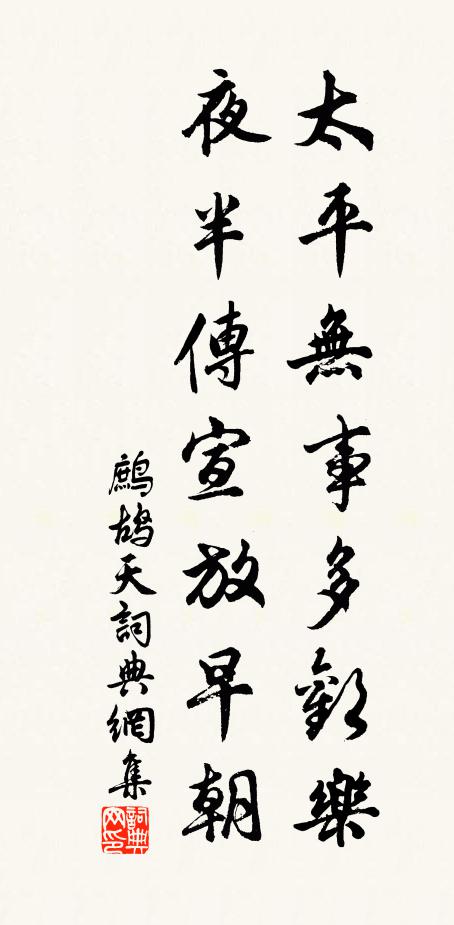 太平無事多歡樂
夜半傳宣放早朝
鷓鴣天詞典網集
詞典網印